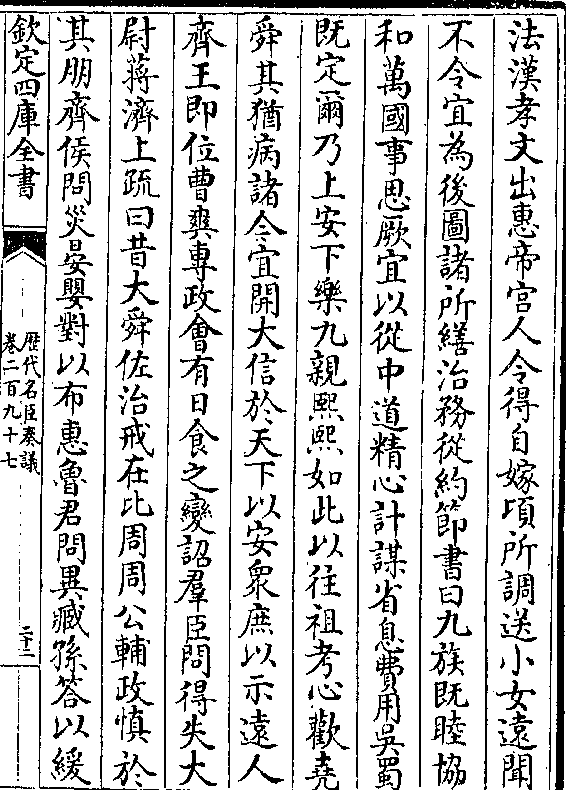 法漢孝文出惠帝宮人令得自嫁頃所調送小女遠聞
不令宜為後圖諸所繕治務從約節書曰九族既睦協
和萬國事思厥宜以從中道精心計謀省息費用吳蜀
既定爾乃上安下樂九親熙熙如此以往祖考心歡堯
舜其猶病諸今宜開大信於天下以安衆庶以示遠人
齊王即位曹爽專政會有日食之變詔羣臣問得失大
尉蔣濟上疏曰昔大舜佐治戒在比周周公輔政慎於
其朋齊侯問災晏嬰對以布惠魯君問異臧孫答以緩
欽定四庫全書
歷代名臣奏議
卷二百九十七
二十二